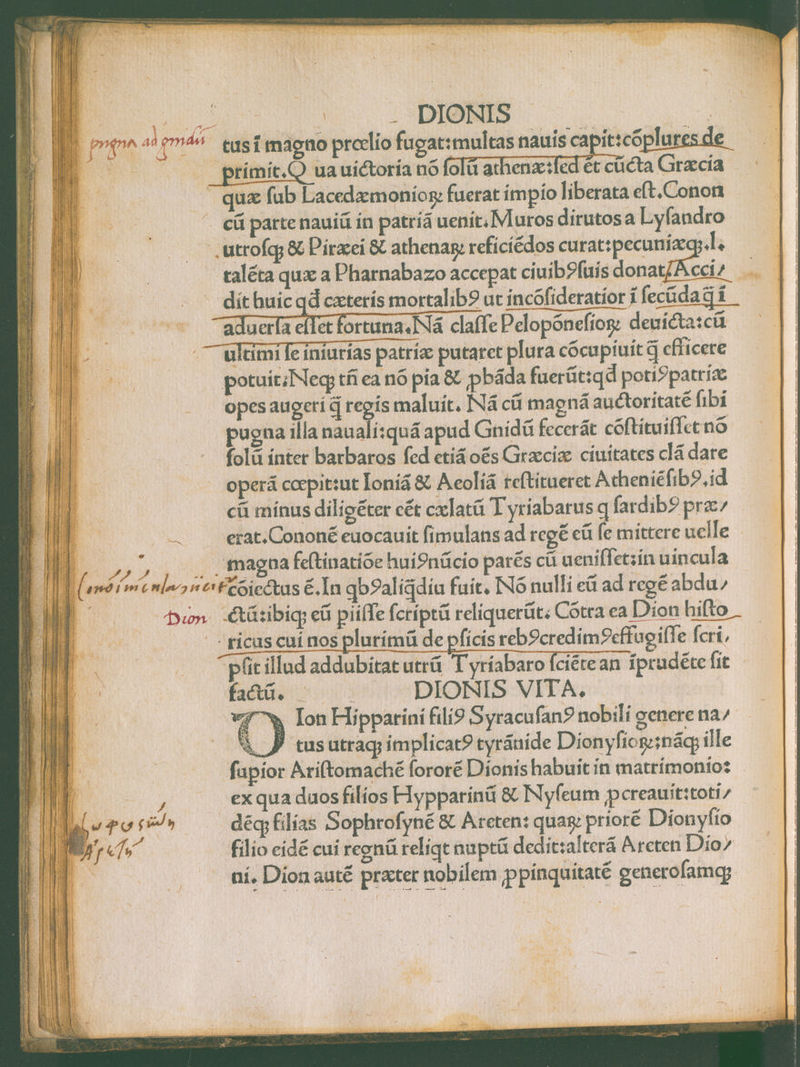 DIONIS
pugna ad gnidũ
tus ĩ magno prœlio fugat:multas nauis capit:cõplures de
primit.Q ua uictoria nõ ſolũ athenæ:ſed ét cũcta Græcia
quæ ſub Lacedæmonioꝝ fuerat impio liberata eſt.Conon
cũ parte nauiũ in patriã uenit.Muros dirutos a Lyſandro
utroſqꝫ & Piræei & athenaꝝ reficiẽdos curat:pecuniæqꝫ.l.
talẽta quæ a Pharnabazo accepat ciuibꝰſuis donat/Acci/
dit huic qď cæteris mortalibꝰ ut incõſideratior ĩ ſecũda q̃ ĩ
aduerſa eſſet fortuna.Nã claſſe Pelopõneſioꝝ deuicta:cũ
ultimi ſe iniurias patriæ putaret plura cõcupiuit q̃ efficere
potuit:Neqꝫ tñ ea nõ pia & ꝓbãda fuerũt:qď potiꝰpatriæ
opes augeri q̃ regis maluit. Nã cũ magnã auctoritatẽ ſibi
pugna illa nauali:quã apud Gnidũ fecerãt cõſtituiſſet nõ
ſolũ inter barbaros ſed etiã oẽs Græciæ ciuitates clã dare
operã cœpit:ut Ioniã & Aeoliã reſtitueret Atheniẽſibꝰ.id
cũ minus diligẽter eẽt cælatũ Tyriabarus q ſardibꝰ præ/
erat.Cononẽ euocauit ſimulans ad regẽ eũ ſe mittere uelle
magna feſtinatiõe huiꝰnũcio parẽs cũ ueniſſet:in uincula
cõiectus ẽ.In qbꝰaliq̃diu fuit. Nõ nulli eũ ad regẽ abdu/
Dion
ctũ:ibiqꝫ eũ piiſſe ſcriptũ reliquerũt. Cõtra ea Dion hiſto
ricus cui nos plurimũ de pſicis rebꝰcredimꝰeffugiſſe ſcri/
pſit illud addubitat utrũ Tyriabaro ſciẽte an ĩprudẽte ſit
factũ. DIONIS VITA.
DIon Hipparini filiꝰ Syracuſanꝰ nobili genere na/
tus utraqꝫ implicatꝰ tyrãnide Dionyſioꝝ;nãqꝫ ille
ſupior Ariſtomachẽ ſororẽ Dionis habuit in matrimonio:
ex qua duos filios Hypparinũ & Nyſeum ꝓcreauit:toti/
dẽqꝫ filias Sophroſynẽ & Areten: quaꝝ priorẽ Dionyſio
filio eidẽ cui regnũ reliqt nuptũ dedit:alterã Areten Dio/
ni. Dion autẽ præter nobilem ꝓpinquitatẽ generoſamqꝫ